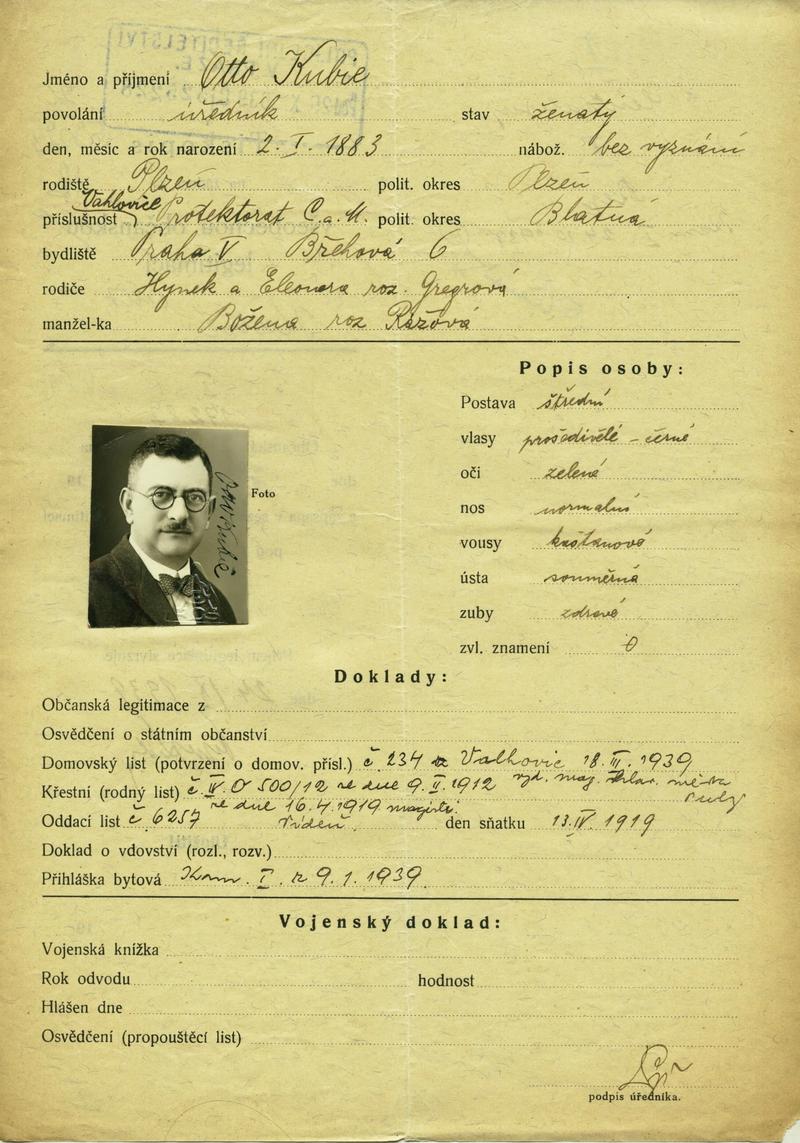 Jméno a příjmení Otto Kubie
povolání úředník stav ženatý
den, měsíc a rok narození 2. I. 1883 nábož. bez vyznání
rodiště Plzeň polit. okres Plzeň
Vahlovice
příslušnost Protektorat Č. a M. polit. okres Blatná
bydliště Praha V Břehová 6
rodiče Hynek a Eleonora roz. Gregrová
manžel-ka Božena roz
Popis osoby:
Postava střední
vlasy prošedivělé - černé
oči zelené
Foto
nos normalní
vousy kaštanové
ústa souměrná
zuby zdravé
zvl. znamení 0
Doklady:
Občanská legitimace z
Osvědčení o státním občanství
Domovský list (potvrzení o domov. přísl.) č. 234 Valhovic 18. III. 1939
Křestní (rodný list) č. IV. 500/12 ze dne 9. II. 1912 vyd. mag. hlav. města
Prahy
ze dne 16.4.1919 magistr.
Oddací list č 6257 Vídeň den sňatku 13. IV. 1919
Doklad o vdovství (rozl., rozv.)
Přihláška bytová Kom. I. z 9. 1. 1939
Vojenský doklad:
Vojenská knížka
Rok odvodu hodnost
Hlášen dne
Osvědčení (propouštěcí list)
podpis úředníka.